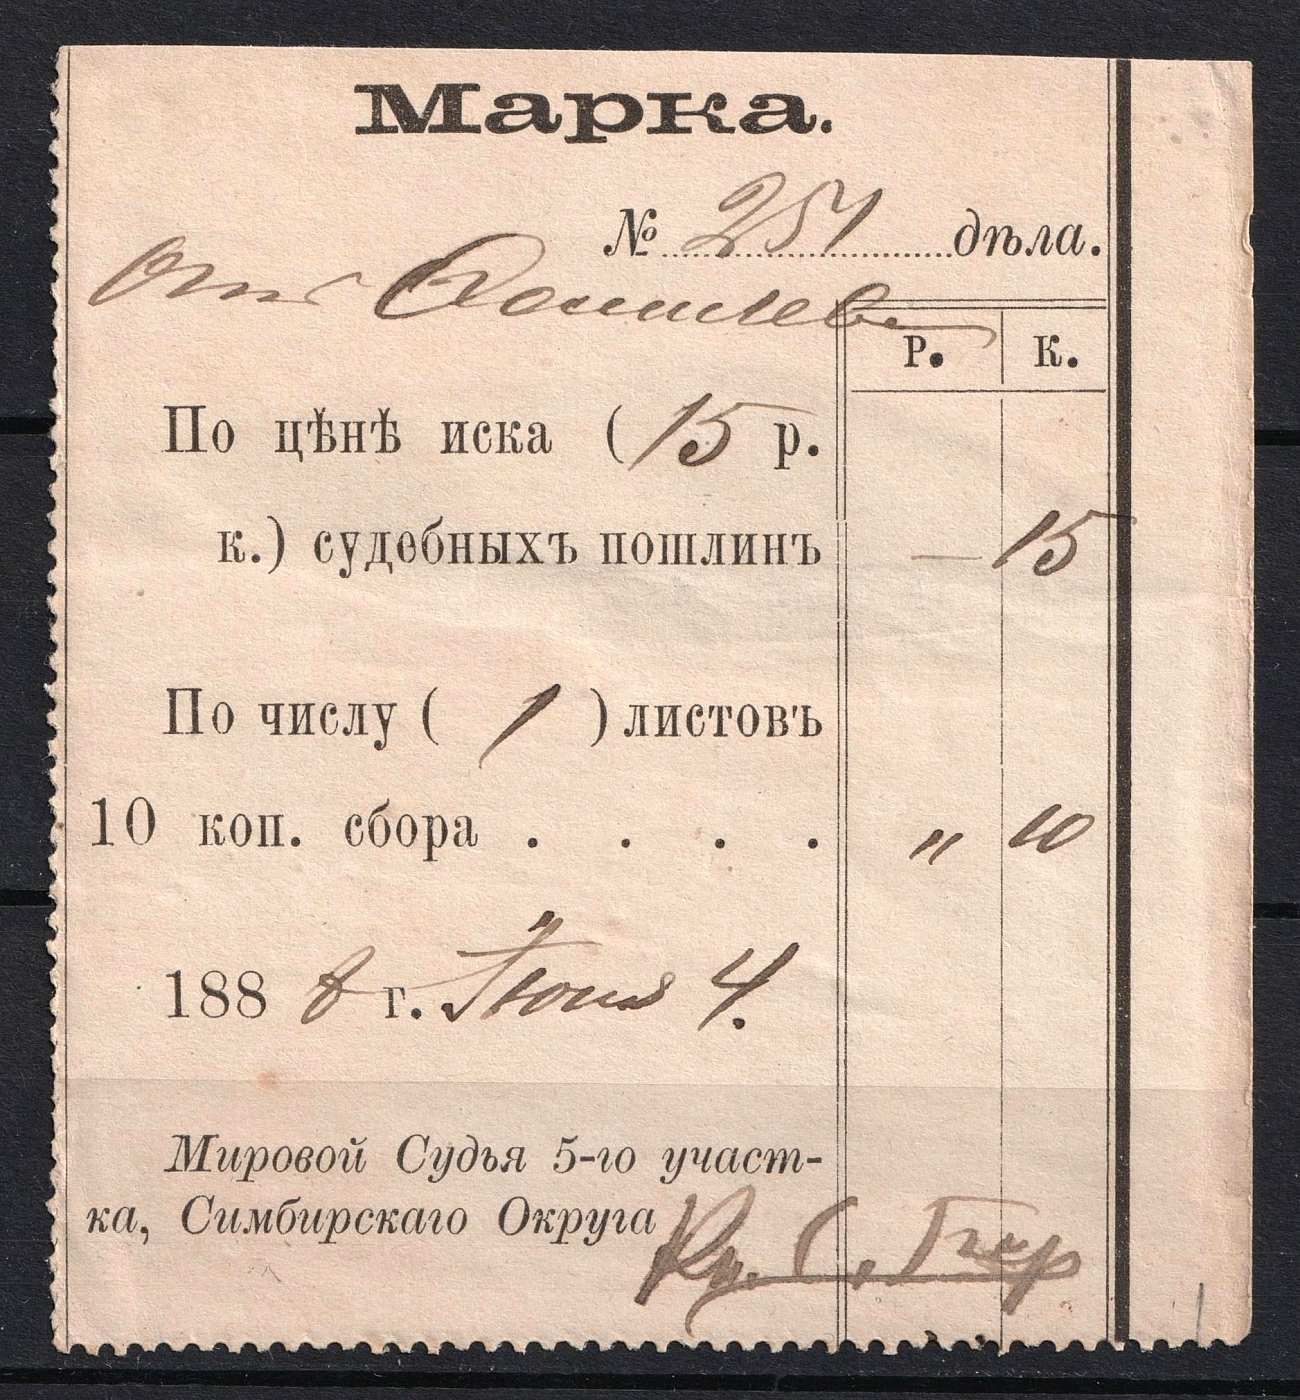 Марка.
№ 257 дѣла.
Отъ
Р. К.
По цѣнѣ иска (15 р.
к.) судебныхъ пошлинъ — 15
По числу ( 1 ) листовъ
10 коп. сбора . . . . " 10
188 г. Июня 4.
Мировой Судья 5-го участ-
ка, Симбирскаго Округа